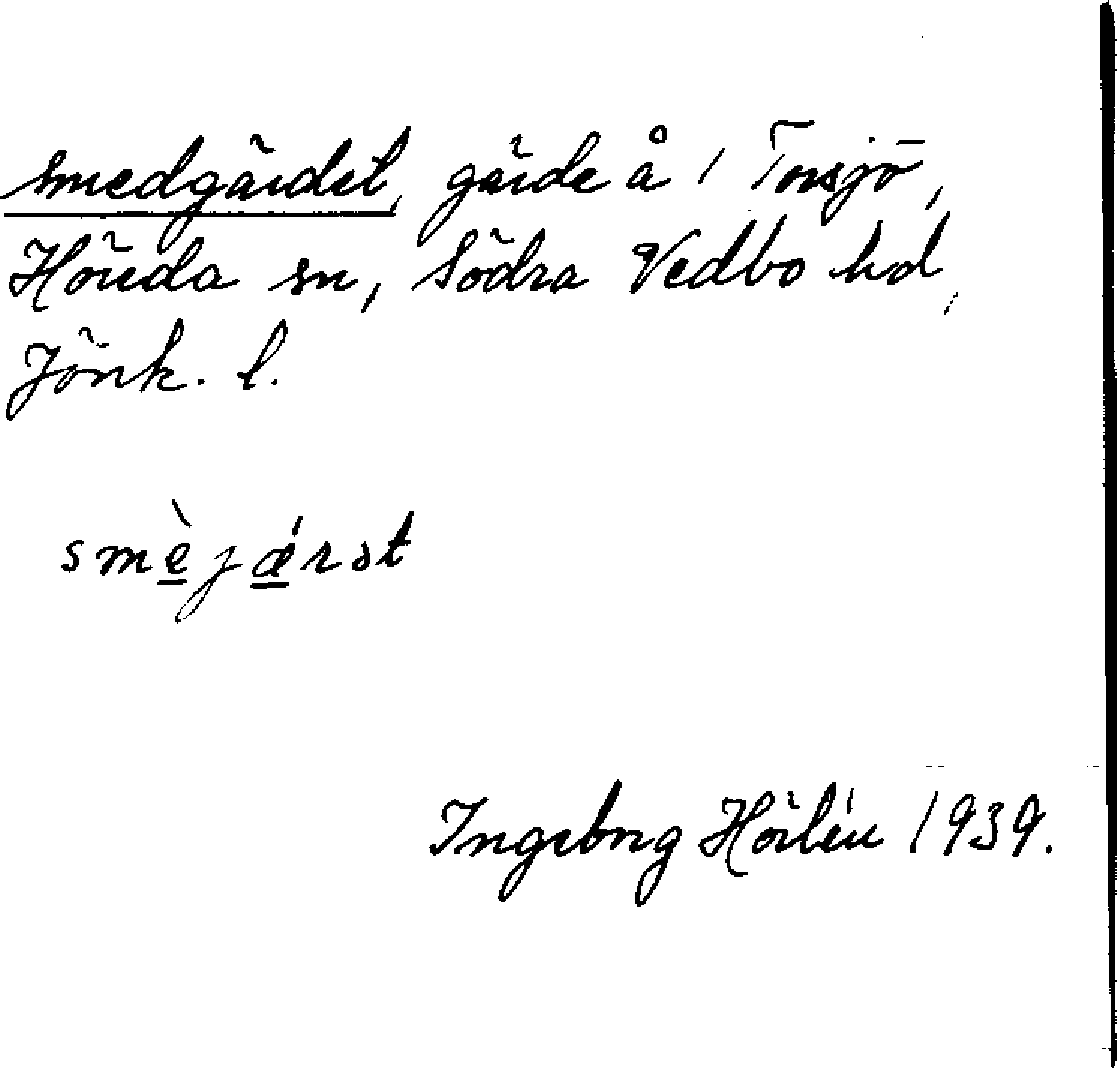 Smedgärdet, gärde å 1 Torsjö,
Höreda sn, Södra Vedbo hd,
Jönk. l.
smèjǽrət
Ingeborg Hörlén 1939.